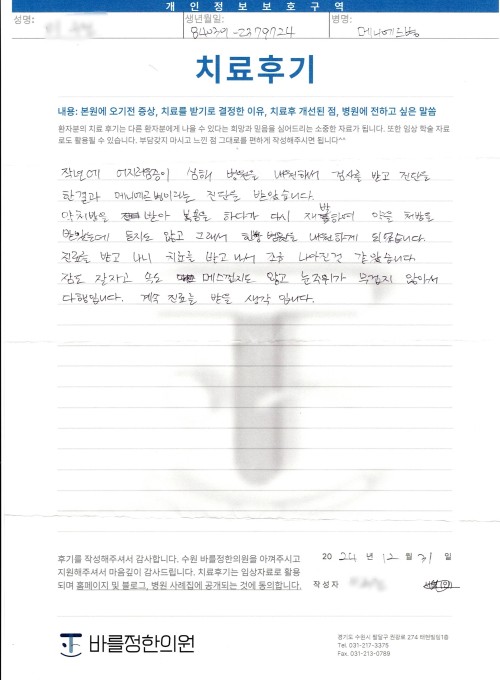 개 인 정 보 보 호 구 역
성명:
생년월일:
병명:
메니에르병
치료후기
내용: 본원에 오기전 증상, 치료를 받기로 결정한 이유, 치료후 개선된 점, 병원에 전하고 싶은 말씀
환자분의 치료 후기는 다른 환자분에게 나을 수 있다는 희망과 믿음을 심어드리는 소중한 자료가 됩니다. 또한 임상 학술 자료
로도 활용될 수 있습니다. 부담갖지 마시고 느낀 점 그대로를 편하게 작성해주시면 됩니다^^
작년에 어지러움증이 심해 병원을 내원해서 검사를 받고 진단을
한결과 메니에르병이라는 진단을 받았습니다.
약처방을 받아 복용을 하다가 다시 재발하여 약을 처방을
받았는데 듣지도 않고 그래서 한방병원을 내원하게 되었습니다.
진료를 받고 나니 치료를 받고나서 조금 나아진것 같았습니다.
잠도 잘자고 속도 메스껍지도 않고 눈주위가 무겁지 않아서
다행입니다. 계속 진료를 받을 생각 입니다.
후기를 작성해주셔서 감사합니다. 수원 바를정한의원을 아껴주시고
지원해주셔서 마음깊이 감사드립니다. 치료후기는 임상자료로 활용
되며 홈페이지 및 블로그, 병원 사례집에 공개되는 것에 동의합니다.
20 24 년 12 월 31 일
작성자
바를정한의원
경기도 수원시 팔달구 권광로 274 1층
Tel. 031-217-3375
Fax. 031-213-0789